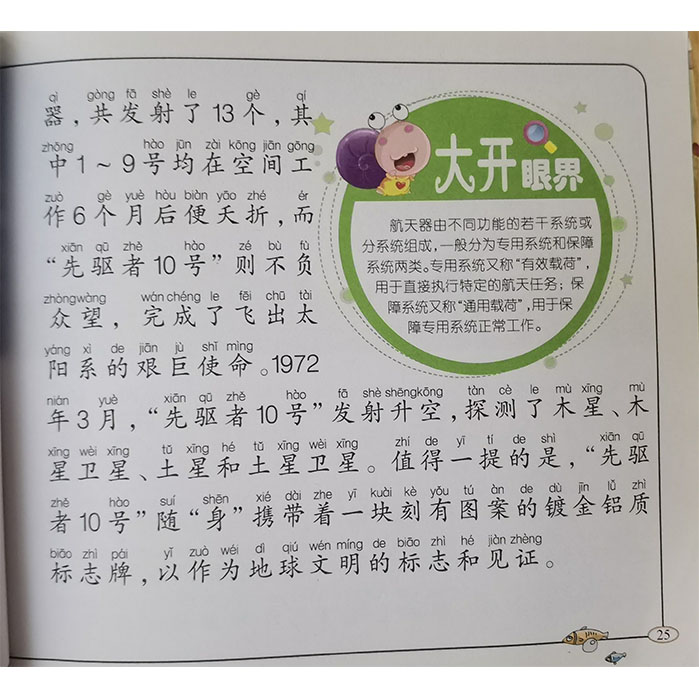 qì gòng fā shè le gè qí
器，共发射了13个，其
zhōng hào jūn zài kōng jiān gōng
中1～9号均在空间工
zuò gè yuè hòu biàn yāo zhé ér
作6个月后便夭折，而
xiān qū zhě hào zé bù fù
“先驱者10号”则不负
zhòngwàng wán chéng le fēi chū tài
众望，完成了飞出太
yáng xì de jiān jù shǐ mìng
阳系的艰巨使命。1972
nián yuè xiān qū zhě hào fā shè shēngkōng tàn cè le mù xīng mù
年3月，“先驱者10号”发射升空，探测了木星、木
xīng wèi xīng tǔ xīng hé tǔ xīng wèi xīng zhí de yī tí de shì xiān qū
星卫星、土星和土星卫星。值得一提的是，“先驱
zhě hào suí shēn xié dài zhe yī kuài kè yǒu tú àn de dù jīn lǚ zhì
者10号”随“身”携带着一块刻有图案的镀金铝质
biāo zhì pái yǐ zuò wéi dì qiú wén míng de biāo zhì hé jiàn zhèng
标志牌，以作为地球文明的标志和见证。
大开眼界
航天器由不同功能的若干系统或
分系统组成，一般分为专用系统和保障
系统两类。专用系统又称“有效载荷”，
用于直接执行特定的航天任务；保
障系统又称“通用载荷”，用于保
障专用系统正常工作。
25